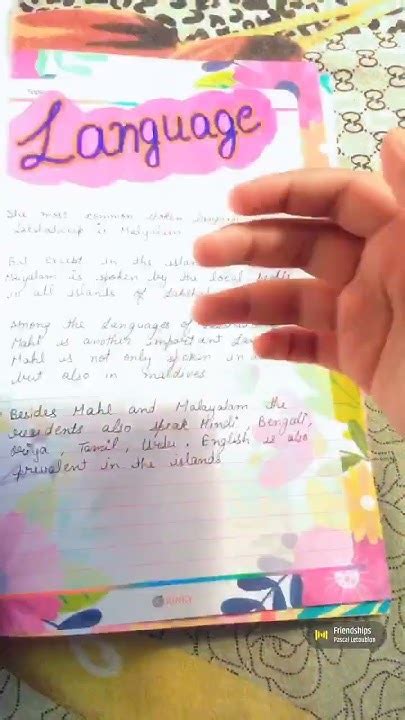 Language
The most common spoken
Lakshadweep is Malyalam
But except in the
Mayalam is spoken by the local
in all islands of
Among the Languages of
Mahl is another important
Mahl is not only spoken in
but also in maldives
Besides Mahl and Malayalam the
residents also speak Hindi, Bengali,
Oriya, Tamil, Urdu, English is also
prevalent in the islands
Friendships
Pascal Letoublon